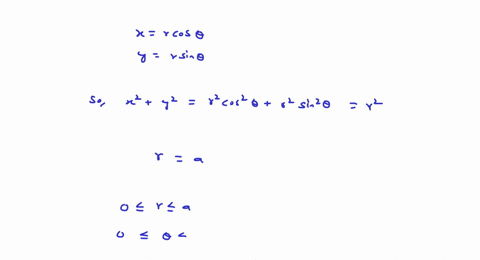 x = r cos θ
y = r sin θ
So, x² + y² = r² cos² θ + r² sin² θ = r²
r = a
0 ≤ r ≤ a
0 ≤ θ <